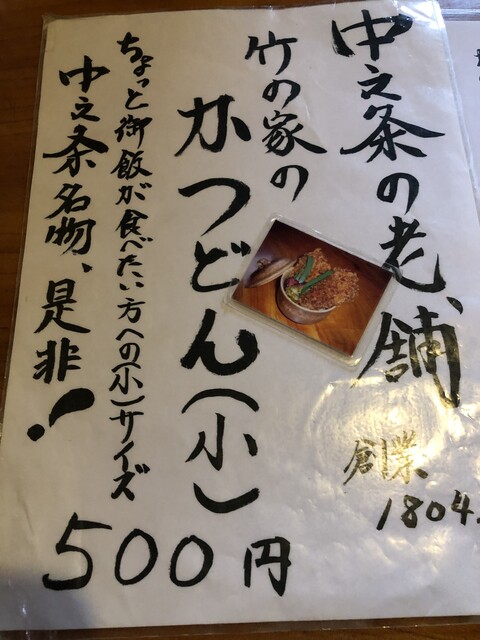 中之条の老舗
創業
1804.
竹の家の
かつどん(小)
ちょっと御飯が食べたい方への(小)サイズ
中之条名物、是非!
500円